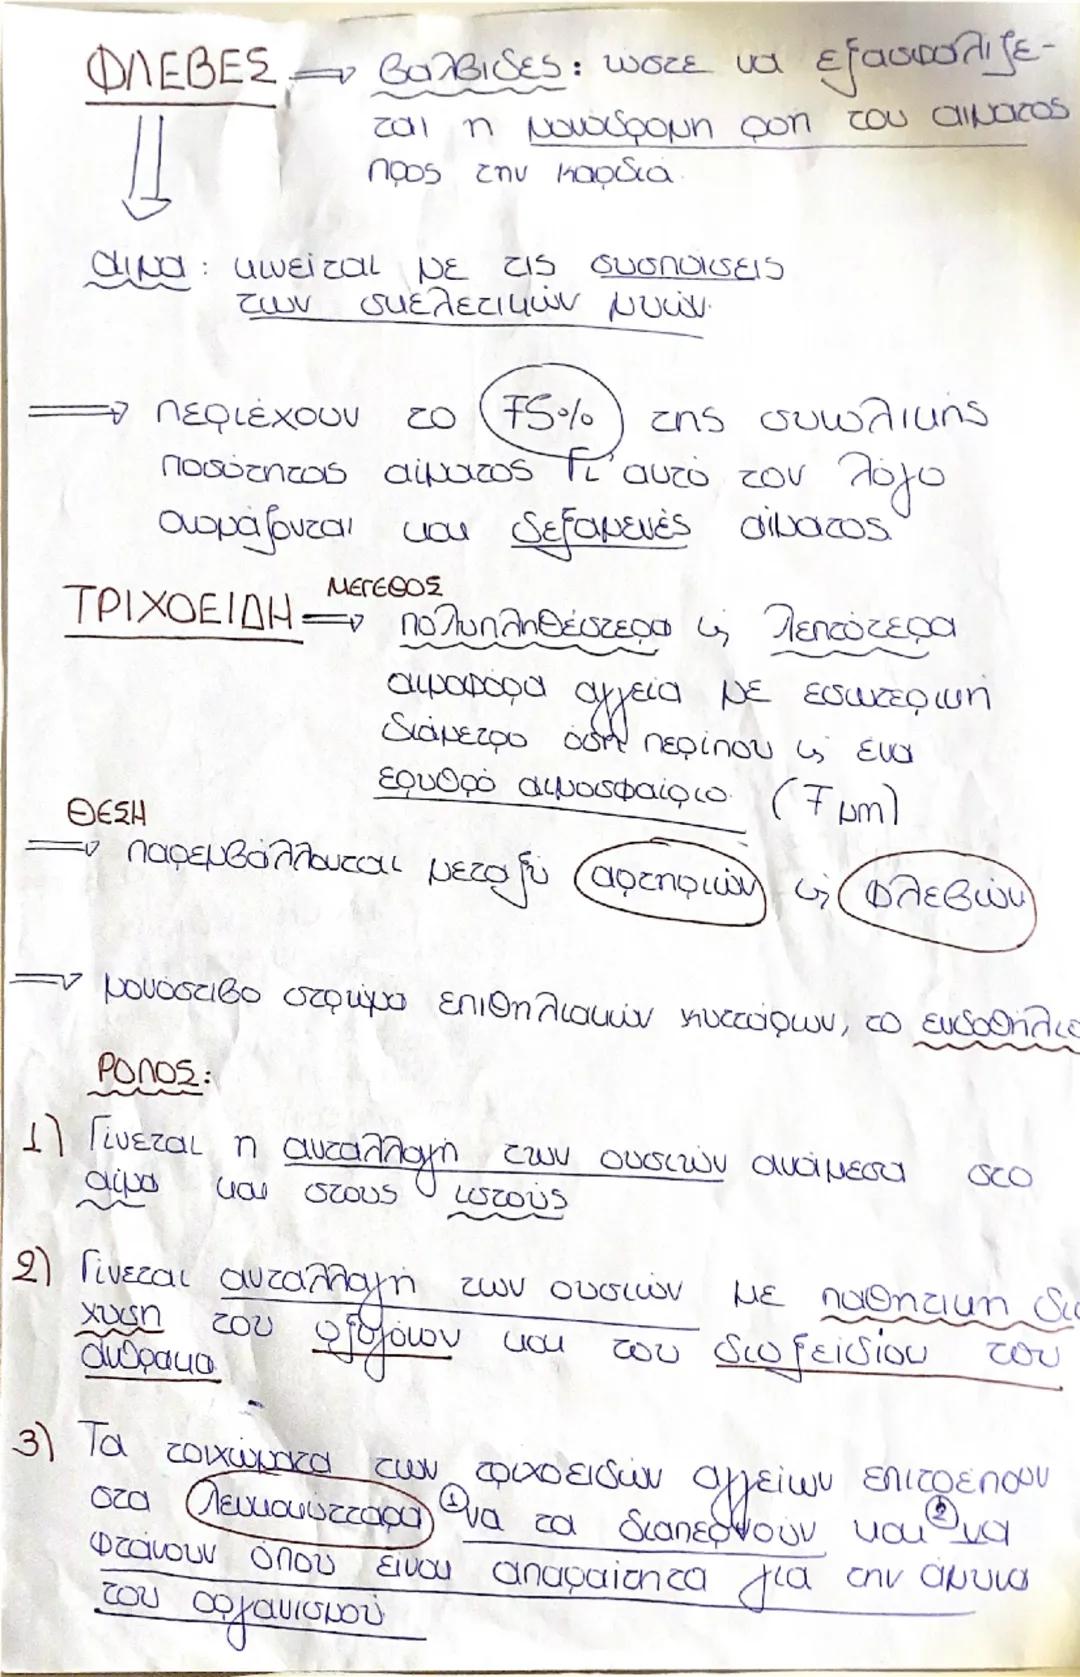 ΦΛΕΒΕΣ ⇒ βαλβίδες: ώστε να εξασφαλίζε-
ται η μονόδρομη ροή του αίματος
προς την καρδιά.
αίμα: κινείται με τις συσπάσεις
των σκελετικών μυών.
⇒ περιέχουν το 75% της συνολικής
ποσότητας αίματος Γι' αυτό τον λόγο
ονομάζονται και δεξαμενές αίματος
ΜΕΓΕΘΟΣ
ΤΡΙΧΟΕΙΔΗ ⇒ πολυπληθέστερα ϗ λεπτότερα
αιμοφόρα αγγεία με εσωτερική
διάμετρο όση περίπου ϗ ένα
ερυθρό αιμοσφαίριο. (7 μm)
ΘΕΣΗ
⇒ παρεμβάλλονται μεταξύ αρτηριών ϗ φλεβών
⇒ μονόστιβο στρώμα επιθηλιακών κυττάρων, το ενδοθήλιο
ΡΟΛΟΣ:
1) Γίνεται η ανταλλαγή των ουσιών ανάμεσα στο
αίμα και στους ιστούς
2) Γίνεται ανταλλαγή των ουσιών με παθητική διά
χυση του οξυγόνου και του διοξειδίου του
άνθρακα
3) Τα τοιχώματα των τριχοειδών αγγείων επιτρέπουν
στα λευκοκύτταρα ① να τα διαπερνούν και ② να
φτάνουν όπου είναι απαραίτητα για την άμυνα
του οργανισμού